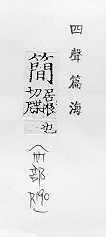 四聲篇海
簡
居限
切牒也
部
R190